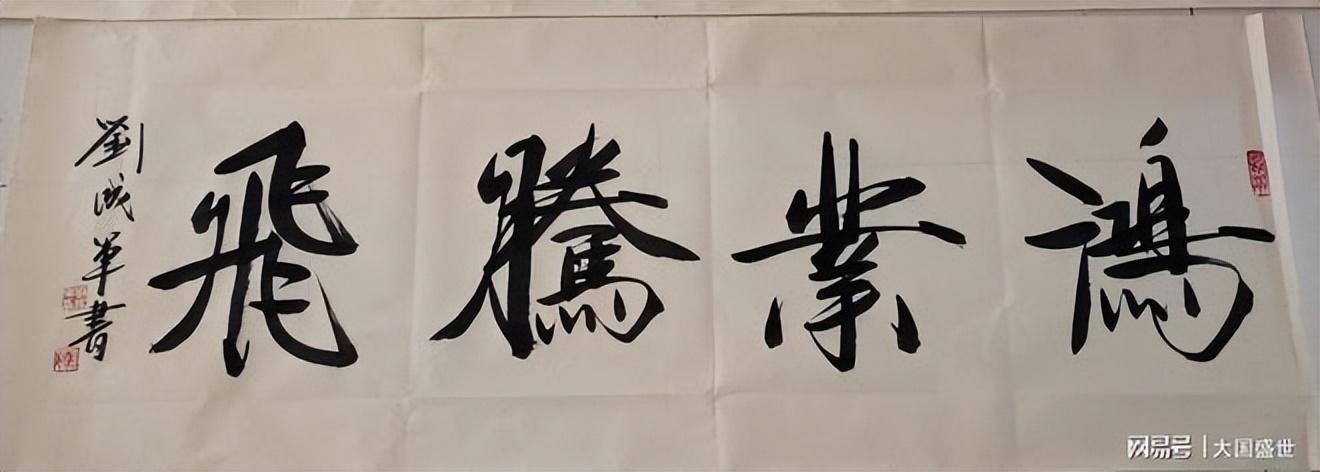 鴻業騰飛
劉成軍書
网易号 | 大国盛世